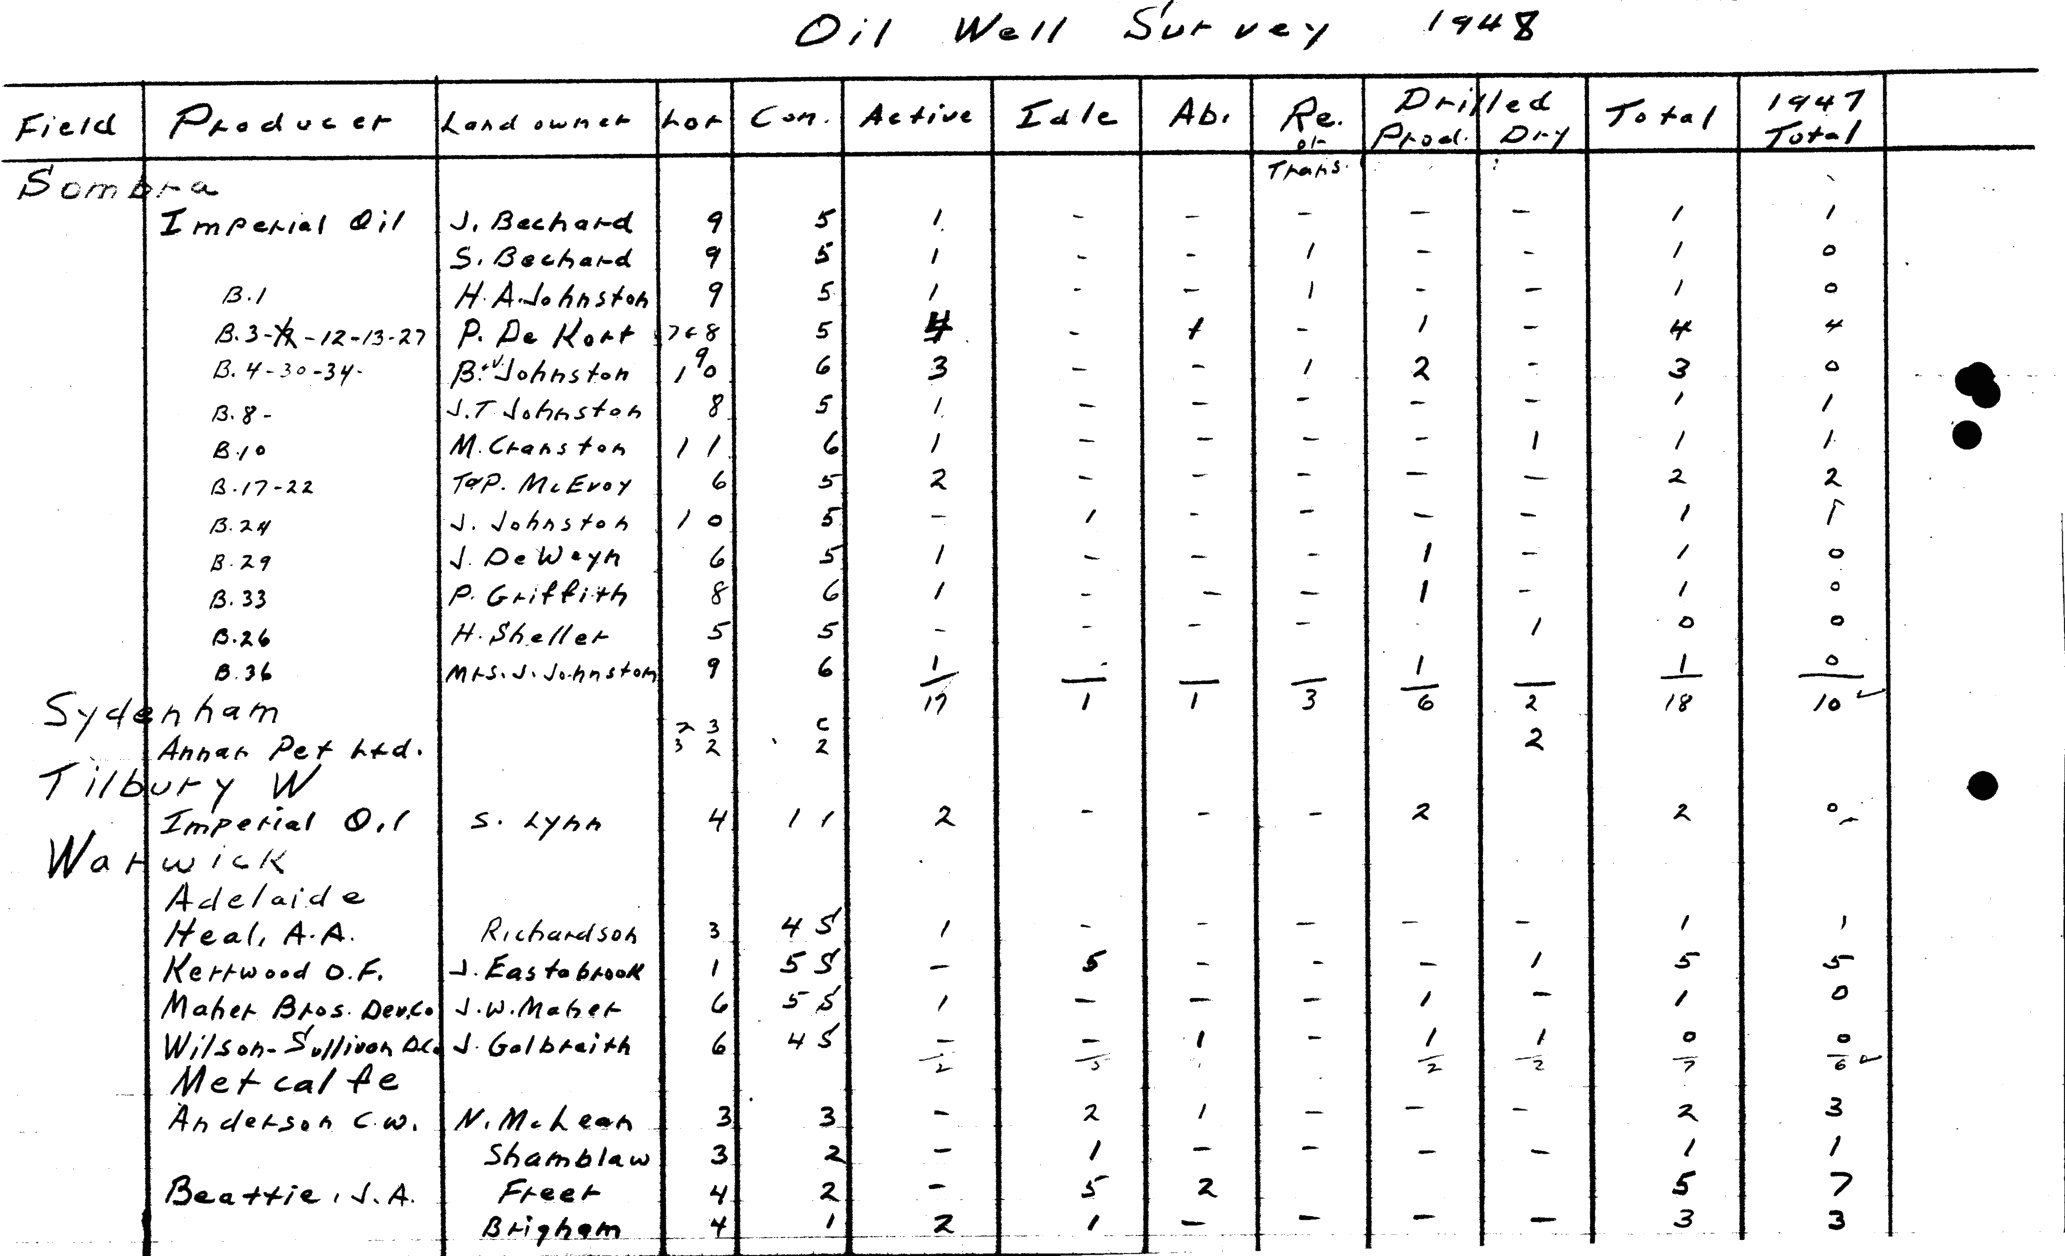 Oil Well Survey 1948
Field Producer Landowner Lot Con. Active Idle Ab. Re. or Trans. Drilled Prod. Dry Total 1947 Total
Sombra
Imperial Oil J. Bechard 9 5 1 - - - - - 1 1
S. Bechard 9 5 1 - - 1 - - 1 0
B.1 H.A. Johnston 9 5 1 - - 1 - - 1 0
B.3- -12-13-27 P. De Kort 7+8 5 4 - 1 - 1 - 4 4
B.4-30-34- B. Johnston 9 10 6 3 - - 1 2 - 3 0
B.8- J.T Johnston 8 5 1 - - - - - 1 1
B.10 M. Cranston 11 6 1 - - - - 1 1 1
B.17-22 T&P. McEvoy 6 5 2 - - - - - 2 2
B.24 J. Johnston 10 5 - 1 - - - - 1 1
B.29 J. DeWayn 6 5 1 - - - 1 - 1 0
B.33 P. Griffith 8 6 1 - - - 1 - 1 0
B.26 H. Sheller 5 5 - - - - 1 0 0
B.36 Mrs. J. Johnston 9 6 1 - 1 1 0
17 1 1 3 6 2 18 10 ✓
Sydenham
23 C
Annar Pet Ltd. 32 2 2
Tilbury W
Imperial Oil S. Lynn 4 11 2 - - - 2 2 0
Warwick
Adelaide
Heal, A.A. Richardson 3 4 S 1 - - - - - 1 1
Kerrwood O.F. J. Eastabrook 1 5 S - 5 - - - 1 5 5
Maher Bros. Dev.Co J.W. Maher 6 5 S 1 - - - 1 - 1 0
Wilson-Sullivan D.Co J. Galbraith 6 4 S - - 1 - 1 1 0 0
2 5 2 2 7 6 ✓
Metcalfe
Anderson C.W. N. McLean 3 3 - 2 1 - - - 2 3
Shamblaw 3 2 - 1 - - - - 1 1
Beattie, J.A. Freer 4 2 - 5 2 5 7
Brigham 4 1 2 1 - - - - 3 3